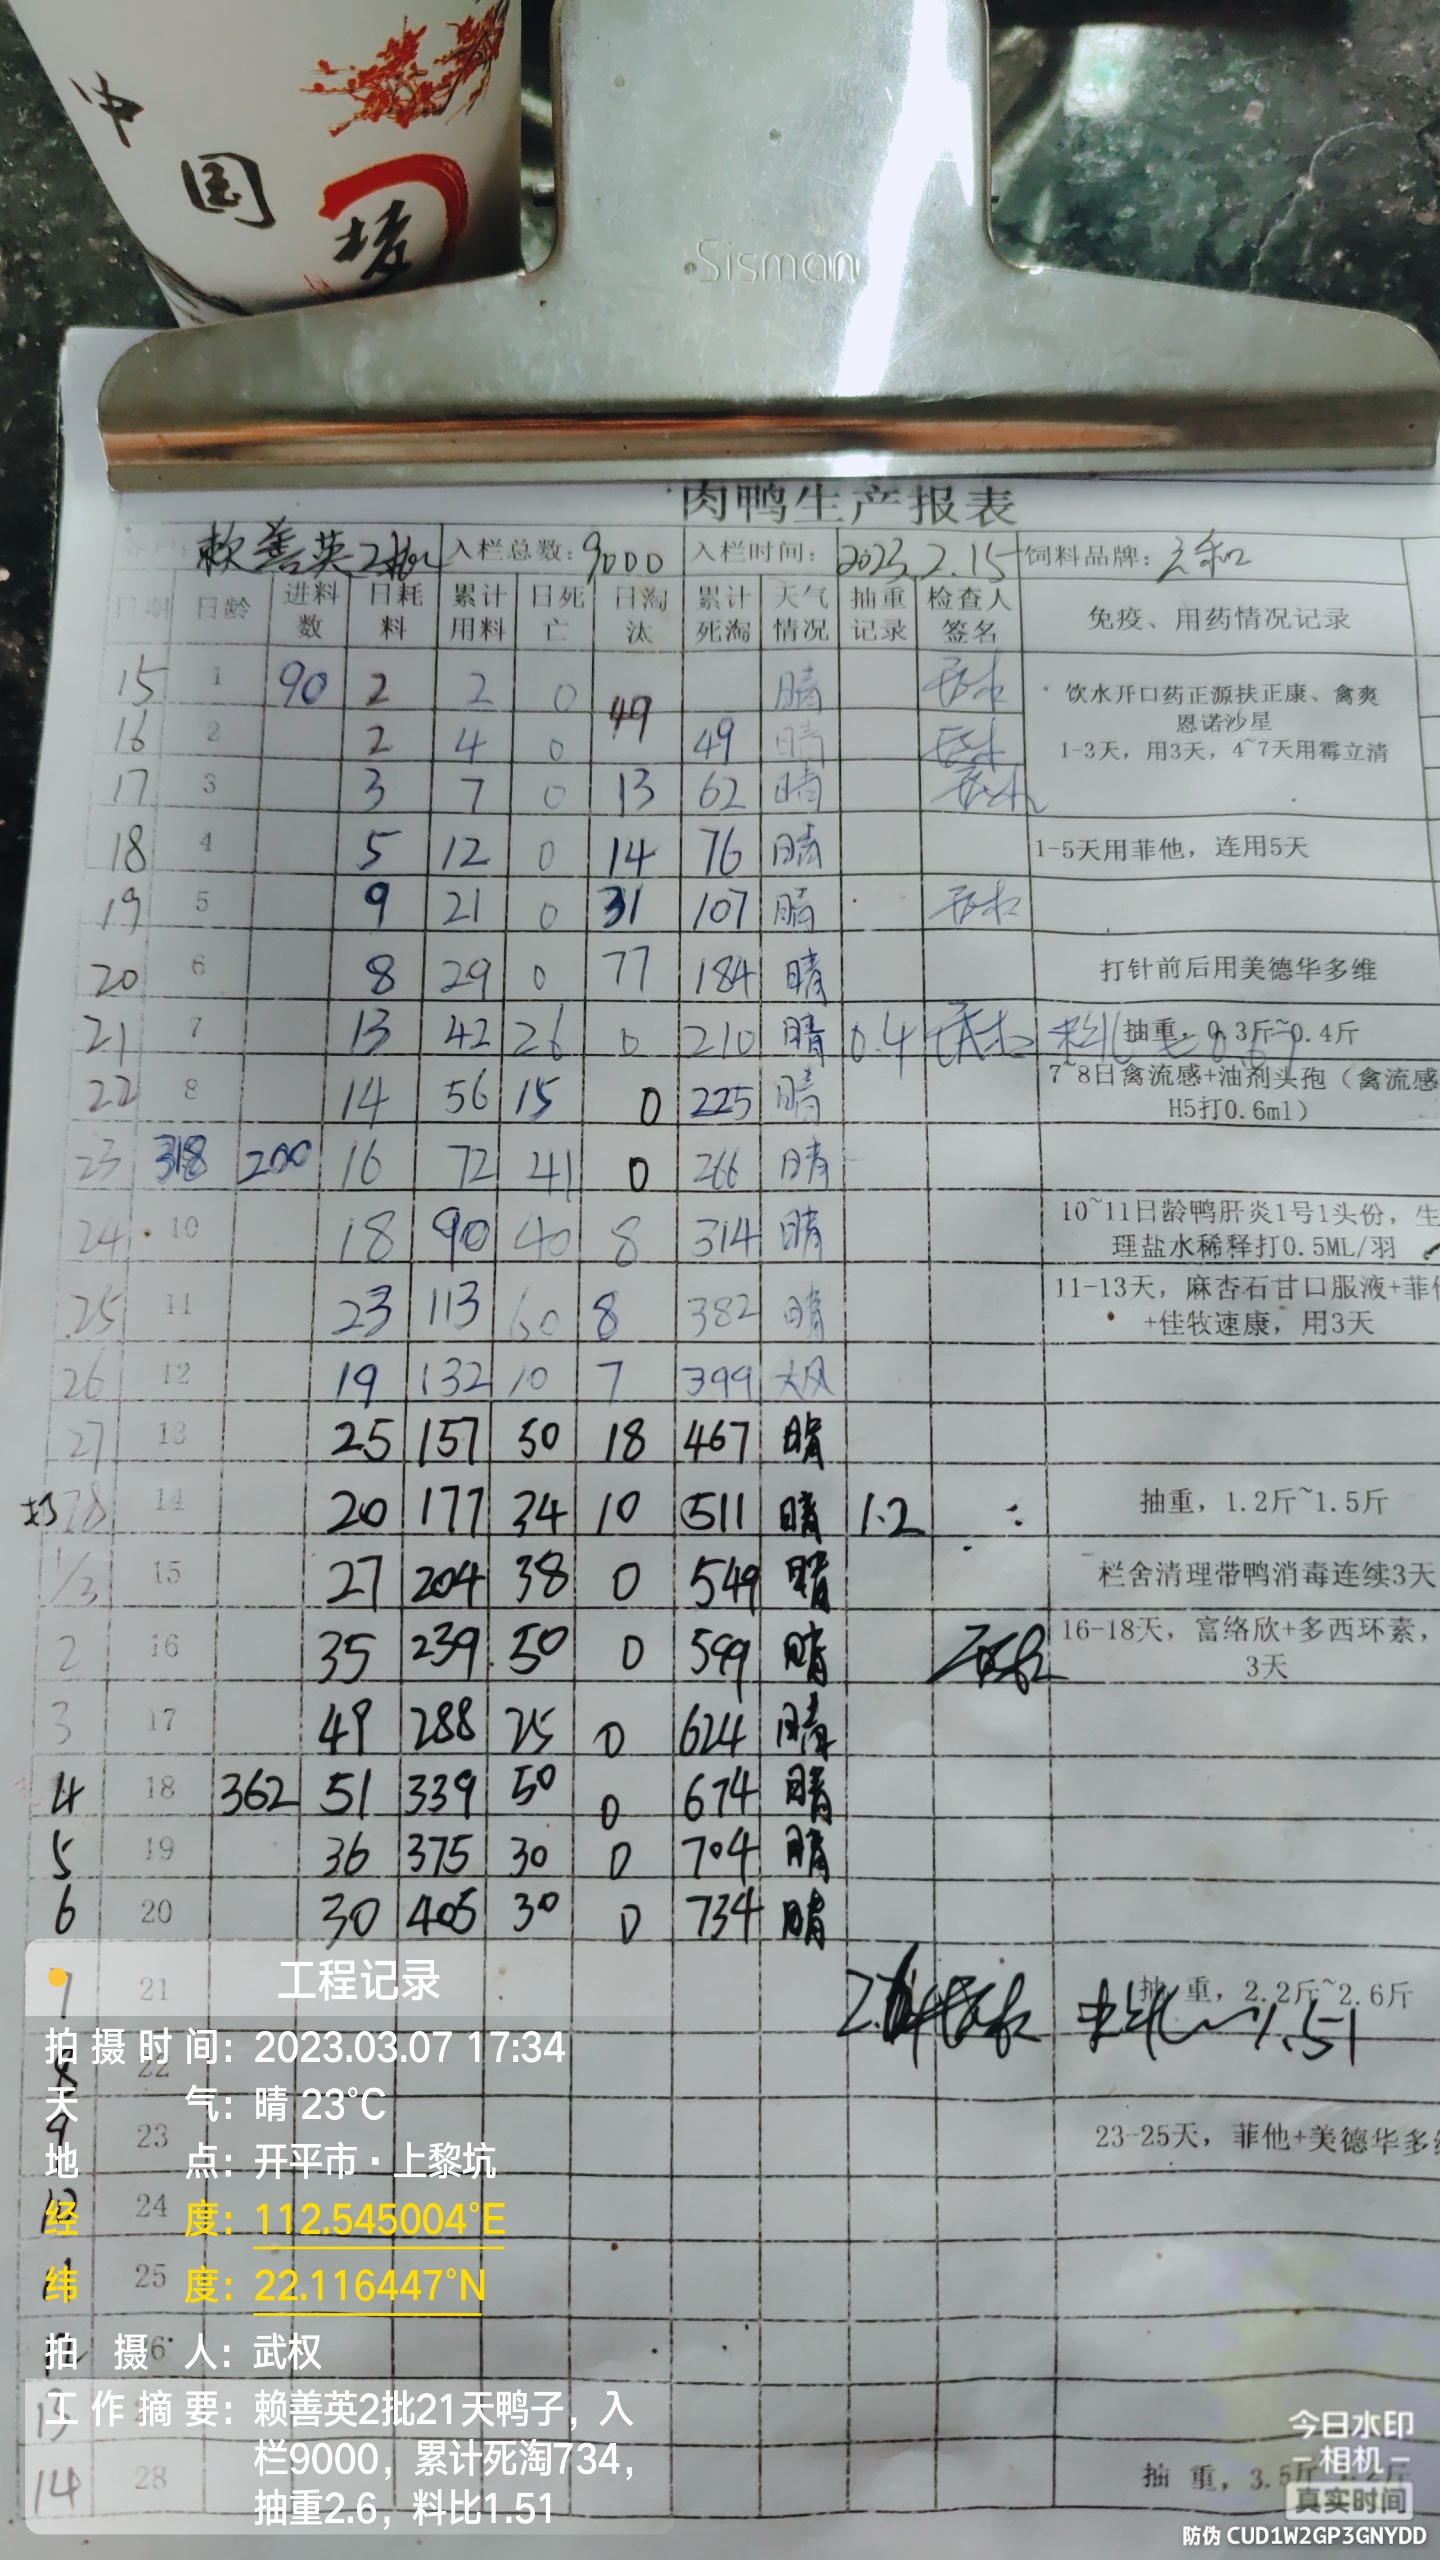 中
国
Sisman
肉鸭生产报表
赖善英2批 入栏总数：9000 入栏时间：2023.2.15 饲料品牌：
日期 日龄 进料数 日耗料 累计用料 日死亡 日淘汰 累计死淘 天气情况 抽重记录 检查人签名 免疫、用药情况记录
15 1 90 2 2 0 晴
49
饮水开口药正源扶正康、禽爽
恩诺沙星
1-3天，用3天，4~7天用霉立清
16 2 2 4 0 49 晴
17 3 3 7 0 13 62 晴
18 4 5 12 0 14 76 晴 1-5天用菲他，连用5天
19 5 9 21 0 31 107 晴
20 6 8 29 0 77 184 晴 打针前后用美德华多维
21 7 13 42 26 0 210 晴 0.4 抽重，0.3斤~0.4斤
22 8 14 56 15 0 225 晴 7~8日禽流感+油剂头孢（禽流感
H5打0.6ml）
23 318 200 16 72 41 0 266 晴
24 10 18 90 40 8 314 晴 10~11日龄鸭肝炎1号1头份，生
理盐水稀释打0.5ML/羽
25 11 23 113 60 8 382 晴 11-13天，麻杏石甘口服液+菲他
+佳牧速康，用3天
26 12 19 132 10 7 399 大风
27 13 25 157 50 18 467 晴
28 14 20 177 34 10 511 晴 1.2 抽重，1.2斤~1.5斤
1/3 15 27 204 38 0 549 晴 栏舍清理带鸭消毒连续3天
2 16 35 239 50 0 599 晴 16-18天，富络欣+多西环素，
3天
3 17 49 288 25 0 624 晴
4 18 362 51 339 50 0 674 晴
5 19 36 375 30 0 704 晴
6 20 30 405 30 0 734 晴
7 21 抽 重，2.2斤~2.6斤
料比~1.51
8 22
9 23 23-25天，菲他+美德华多维
10 24
11 25
13
14 28 抽 重，3.5斤
工程记录
拍摄时间：2023.03.07 17:34
天气：晴 23°C
地点：开平市·上黎坑
经度：112.545004°E
纬度：22.116447°N
拍摄人：武权
工作摘要：赖善英2批21天鸭子，入
栏9000，累计死淘734，
抽重2.6，料比1.51
今日水印
-相机-
真实时间
防伪 CUD1W2GP3GNYDD